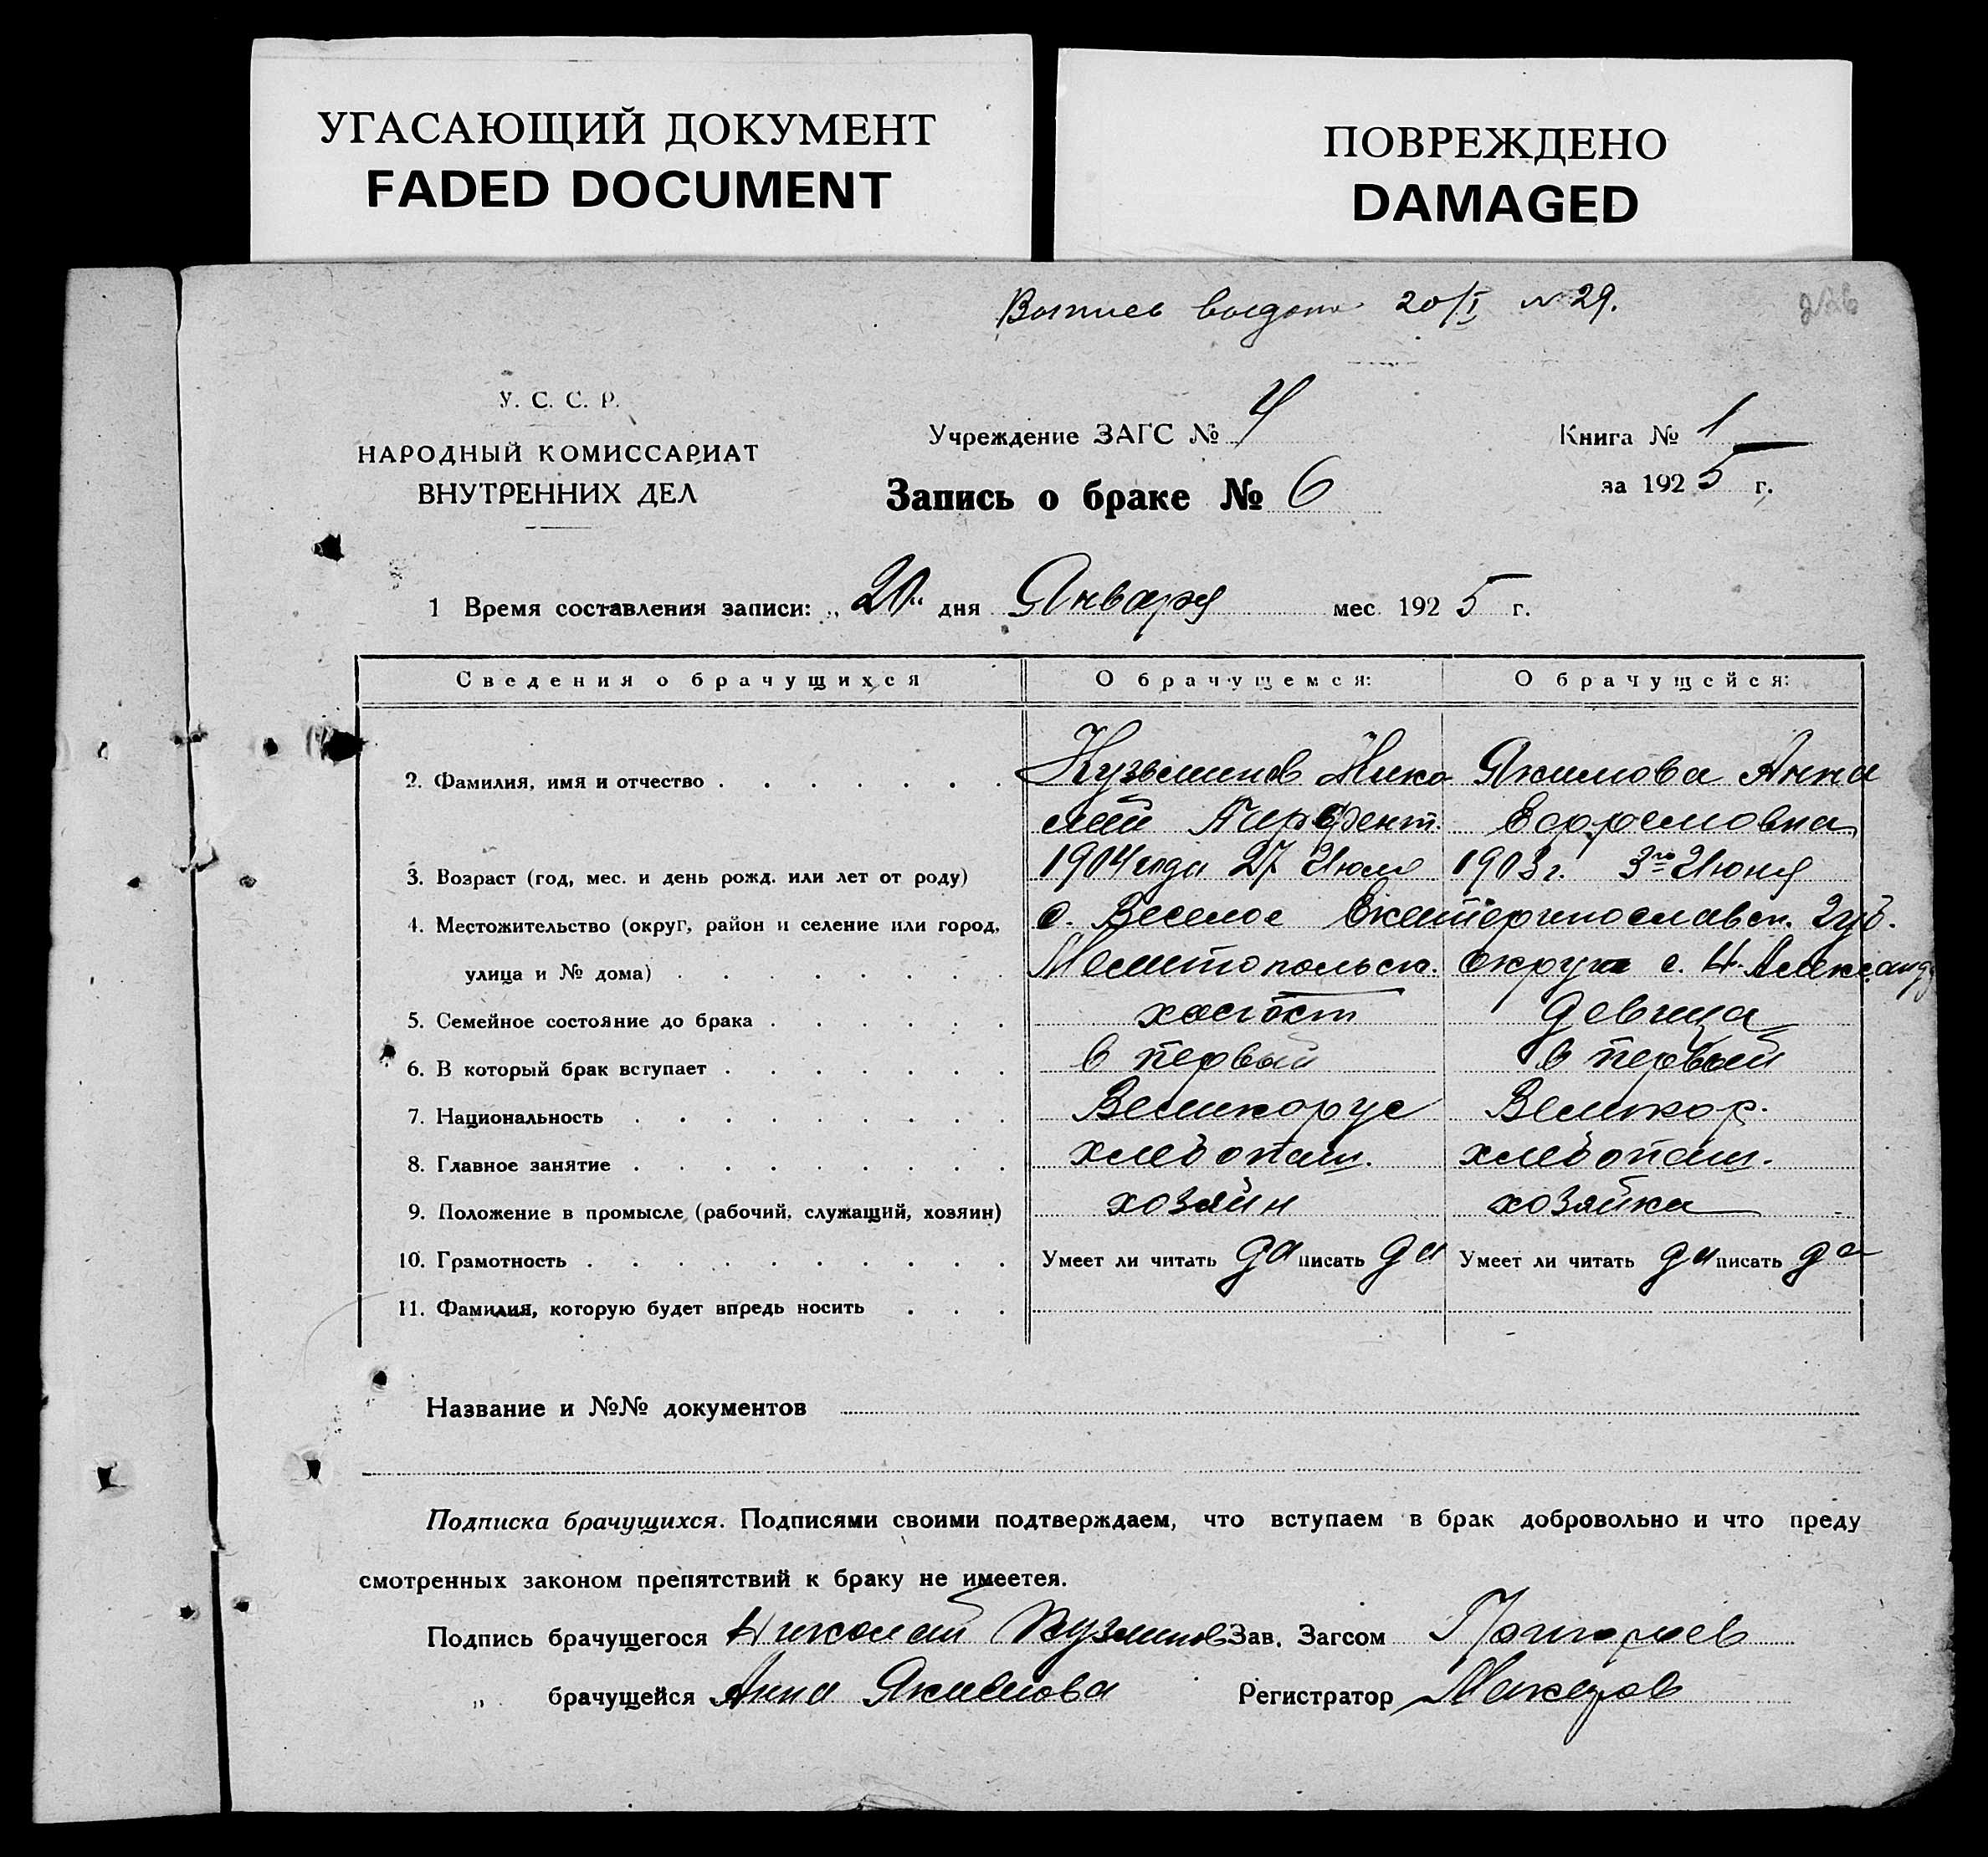 УГАСАЮЩИЙ ДОКУМЕНТ
FADED DOCUMENT
ПОВРЕЖДЕНО
DAMAGED
Выпись выдана 20/I № 29.
У. С. С. Р.
НАРОДНЫЙ КОМИССАРИАТ
ВНУТРЕННИХ ДЕЛ
Учреждение ЗАГС № 4
Запись о браке № 6
Книга № 1
за 1925 г.
1 Время составления записи: „20“ дня Января мес. 1925 г.
Сведения о брачущихся О брачущемся: О брачущейся:
2. Фамилия, имя и отчество Кузьминов Нико Якимова Анна
лай Парфент. Ефремовна
3. Возраст (год, мес. и день рожд. или лет от роду) 1904 года 27 Июля 1903 г. 3го Июня
4. Местожительство (округ, район и селение или город, с. Веселое Екатеринославск. Губ.
улица и № дома) Мелитопольск. округа с. Н. Александр
5. Семейное состояние до брака холост девица
6. В который брак вступает в первый в первый
7. Национальность Великорус Великор.
8. Главное занятие хлебопаш. хлебопаш.
9. Положение в промысле (рабочий, служащий, хозяин) хозяин хозяйка
10. Грамотность Умеет ли читать да писать да Умеет ли читать да писать да
11. Фамилия, которую будет впредь носить
Название и №№ документов
Подписка брачущихся. Подписями своими подтверждаем, что вступаем в брак добровольно и что преду
смотренных законом препятствий к браку не имеетея.
Подпись брачущегося Николай Кузминов Зав. Загсом
„ брачущейся Анна Якимова Регистратор